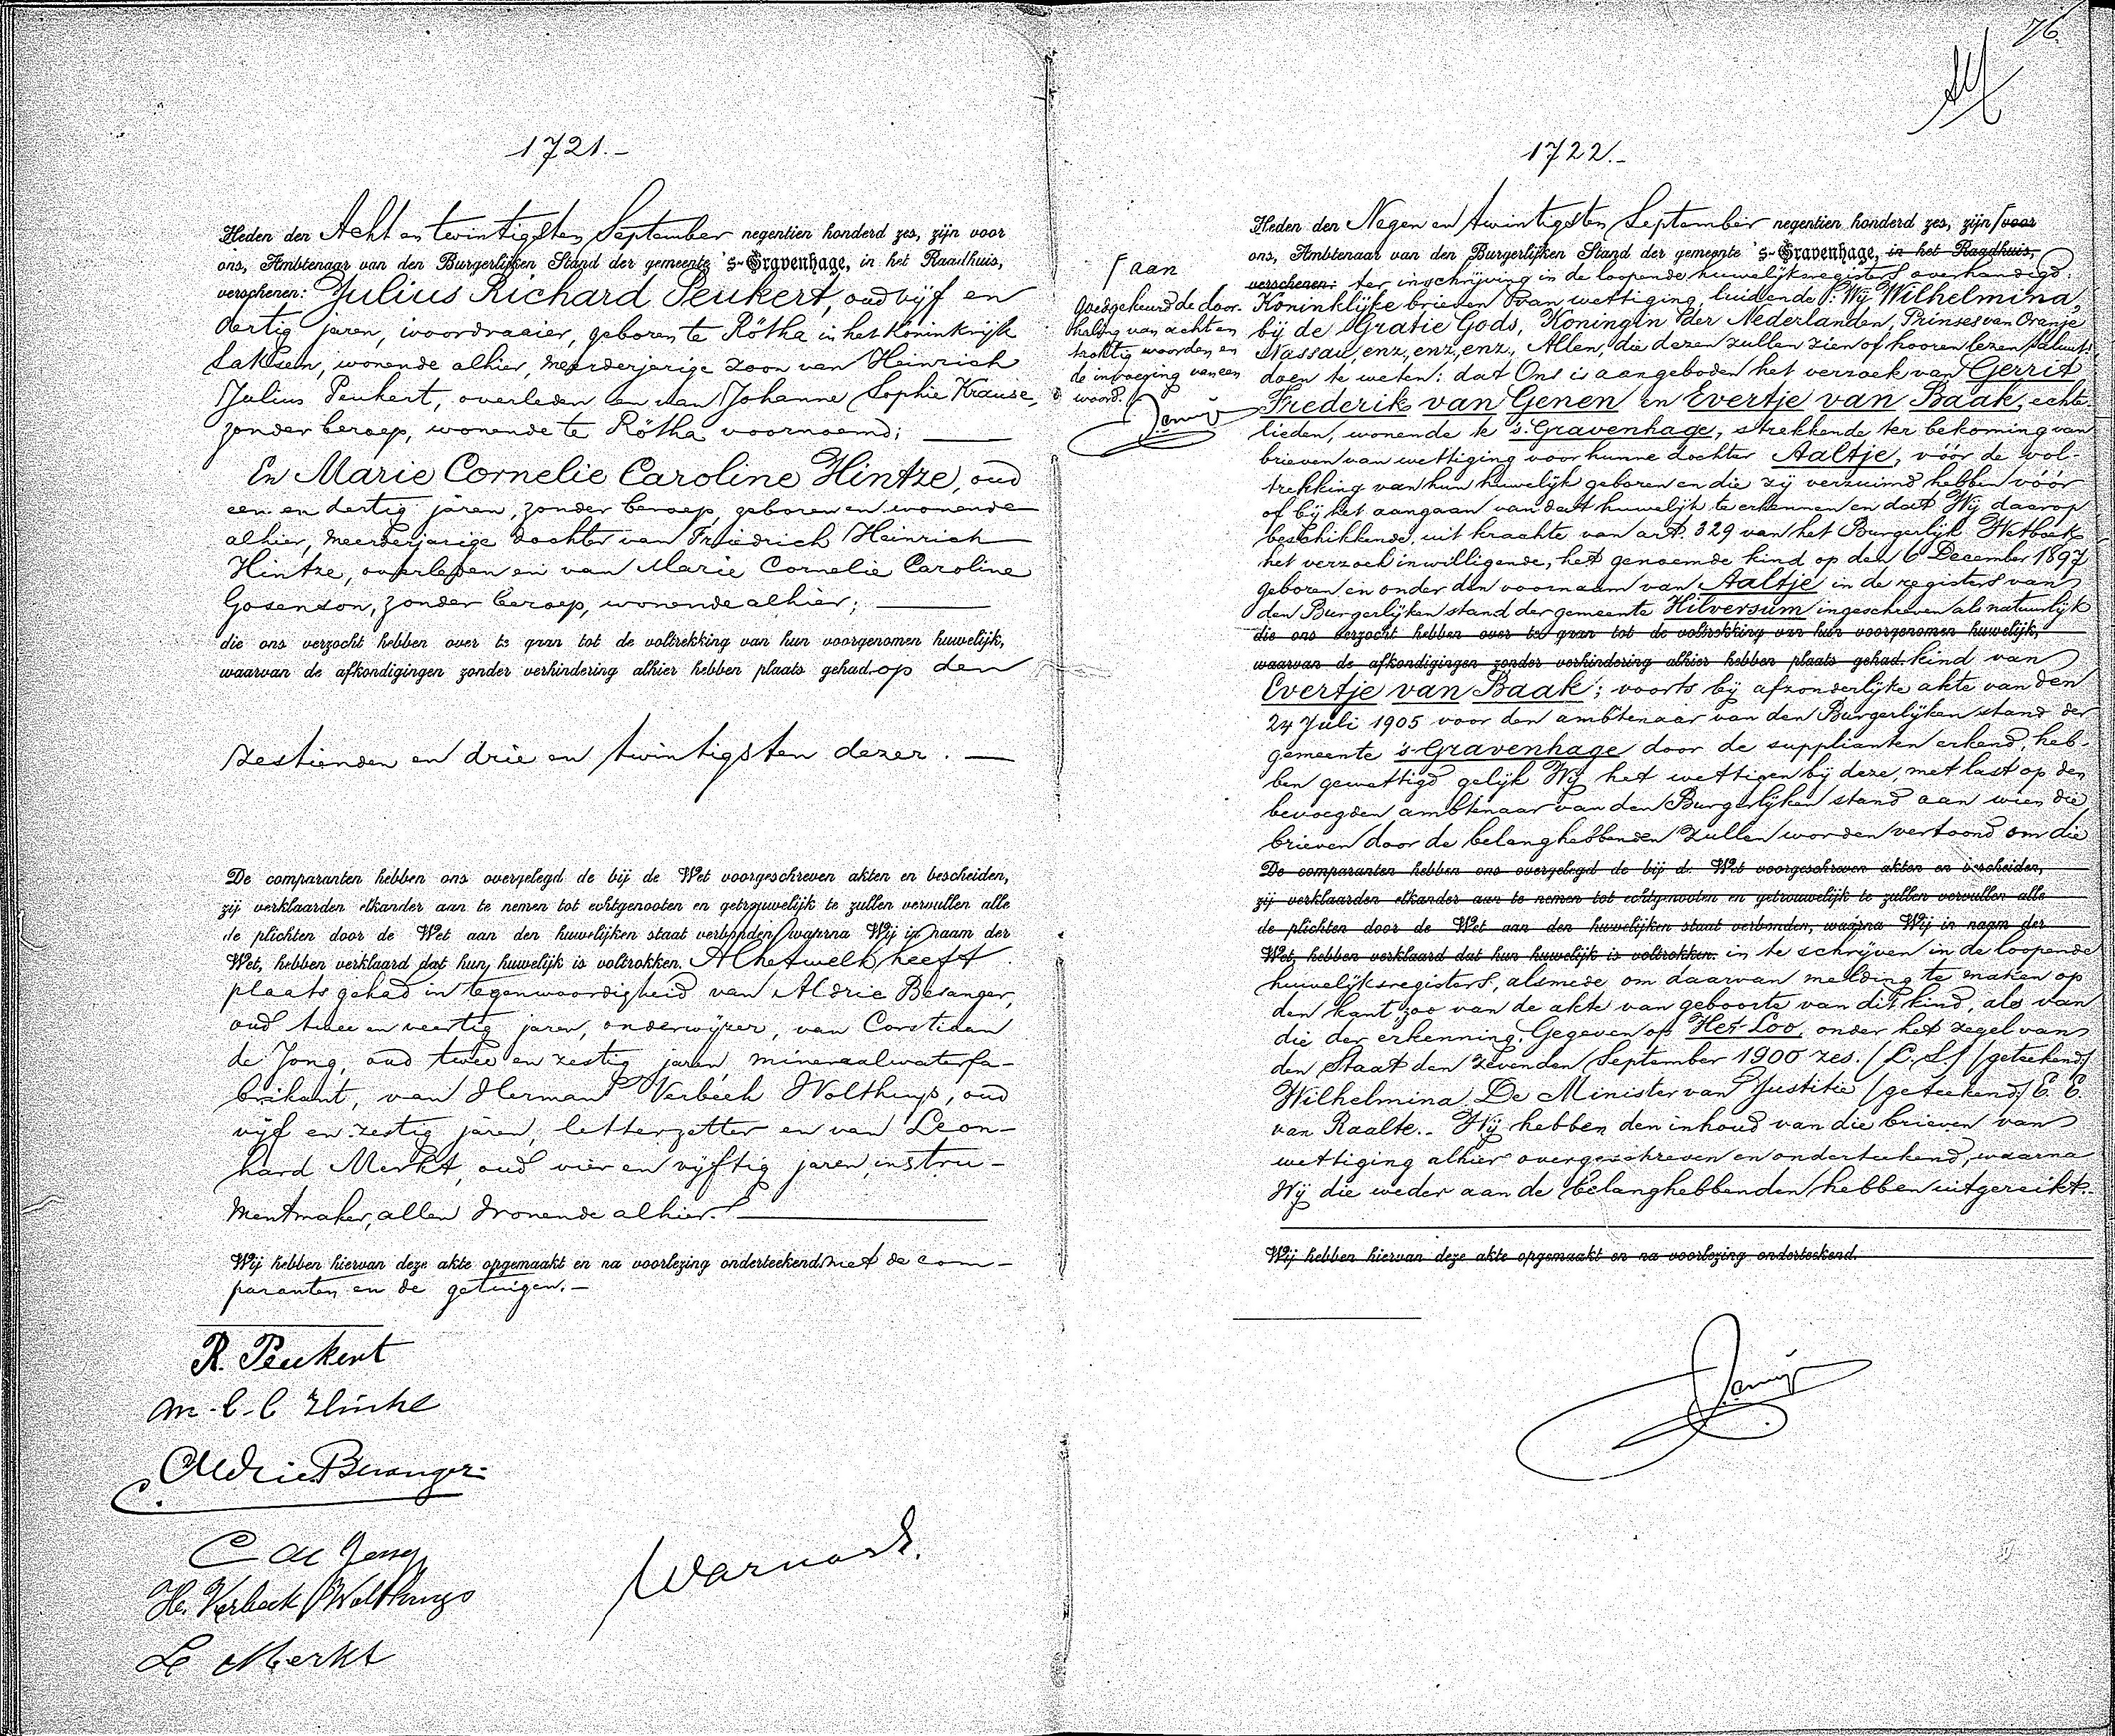 1721.-
Heden den Acht en twintigsten September negentien honderd zes, zijn voor
ons, Ambtenaar van den Burgerlijken Stand der gemeente 's-Gravenhage, in het Raadhuis,
verschenen: Julius Richard Peukert, oud vijf en
dertig jaren, ivoordraaier, geboren te Rötha in het Koninkrijk
Saksen, wonende alhier, meerderjarige zoon van Heinrich
Julius Peukert, overleden en van Johanne Sophie Krause,
zonder beroep, wonende te Rötha voornoemd;
En Marie Cornelie Caroline Hintze, oud
een en dertig jaren, zonder beroep, geboren en wonende
alhier, meerderjarige dochter van Friedrich Heinrich
Hintze, overleden en van Marie Cornelie Caroline
Gosenson, zonder beroep, wonende alhier;
die ons verzocht hebben over te gaan tot de voltrekking van hun voorgenomen huwelijk,
waarvan de afkondigingen zonder verhindering alhier hebben plaats gehad op den
zestienden en drie en twintigsten dezer.
De comparanten hebben ons overgelegd de bij de Wet voorgeschreven akten en bescheiden,
zij verklaarden elkander aan te nemen tot echtgenooten en getrouwelijk te zullen vervullen alle
de plichten door de Wet aan den huwelijken staat verbonden, waarna Wij in naam der
Wet, hebben verklaard dat hun huwelijk is voltrokken. Al hetwelk heeft
plaats gehad in tegenwoordigheid van Aldrie Besanger,
oud twee en veertig jaren, onderwijzer, van Corstiaan
de Jong, oud twee en zestig jaren, mineraalwaterfa-
brikant, van Herman Verbeek Wolthuys, oud
vijf en zestig jaren, letterzetter en van Leon-
hard Merkt, oud vier en vijftig jaren, instru-
mentmaker, allen wonende alhier.
Wij hebben hiervan deze akte opgemaakt en na voorlezing onderteekend met de com-
paranten en de getuigen.-
R. Peukert
M. C. C. Hintze
Aldrie Besanger
C de Jong
H. Verbeek Wolthuys
L Merkt
76.
1722.-
Heden den Negen en twintigsten September negentien honderd zes, zijn voor
ons, Ambtenaar van den Burgerlijken Stand der gemeente 's-Gravenhage, in het Raadhuis,
verschenen: ter inschrijving in de loopende huwelijksregisters overhandigd:
Koninklijke brieven van wettiging, luidende: Wij Wilhelmina,
bij de Gratie Gods, Koningin der Nederlanden, Prinses van Oranje
Nassau, enz., enz., enz., Allen, die dezen zullen zien of hooren lezen, saluut!
doen te weten: dat Ons is aangeboden het verzoek van Gerrit
Frederik van Genen en Evertje van Baak, echte-
lieden, wonende te 's-Gravenhage, strekkende ter bekoming van
brieven van wettiging voor hunne dochter Aaltje, vóór de vol-
trekking van hun huwelijk geboren en die zij verzuimd hebben vóór
of bij het aangaan van dat huwelijk te erkennen en dat Wij daarop
beschikkende, uit krachte van art. 329 van het Burgerlijk Wetboek
het verzoek inwilligende, het genoemde kind op den 6 December 1897
geboren en onder den voornaam van Aaltje in de registers van
den Burgerlijken stand der gemeente Hilversum ingeschreven als natuurlijk
die ons verzocht hebben over te gaan tot de voltrekking van hun voorgenomen huwelijk,
waarvan de afkondigingen zonder verhindering alhier hebben plaats gehad. kind van
Evertje van Baak; voorts bij afzonderlijke akte van den
24 Juli 1905 voor den ambtenaar van den Burgerlijken stand der
gemeente 's-Gravenhage door de supplianten erkend, heb-
ben gewettigd gelijk Wij het wettigen bij deze, met last op den
bevoegden ambtenaar van den Burgerlijken stand aan wien die
brieven door de belanghebbenden zullen worden vertoond om die
De comparanten hebben ons overgelegd de bij de Wet voorgeschreven akten en bescheiden,
zij verklaarden elkander aan te nemen tot echtgenooten en getrouwelijk te zullen vervullen alle
de plichten door de Wet aan den huwelijken staat verbonden, waarna Wij in naam der
Wet, hebben verklaard dat hun huwelijk is voltrokken. in te schrijven in de loopende
huwelijksregisters, alsmede om daarvan melding te maken op
den kant zoo van de akte van geboorte van dit kind, als van
die der erkenning. Gegeven op Het Loo, onder het zegel van
den Staat den zevenden September 1900 zes. (L. S.) (geteekend)
Wilhelmina De Minister van Justitie (geteekend) E. E.
van Raalte.- Wij hebben den inhoud van die brieven van
wettiging alhier overgeschreven en onderteekend, waarna
Wij die weder aan de belanghebbenden hebben uitgereikt.-
Wij hebben hiervan deze akte opgemaakt en na voorlezing onderteekend.
aan
Goedgekeurd de door-
haling van acht en
tachtig woorden en
de invoeging van een
woord.